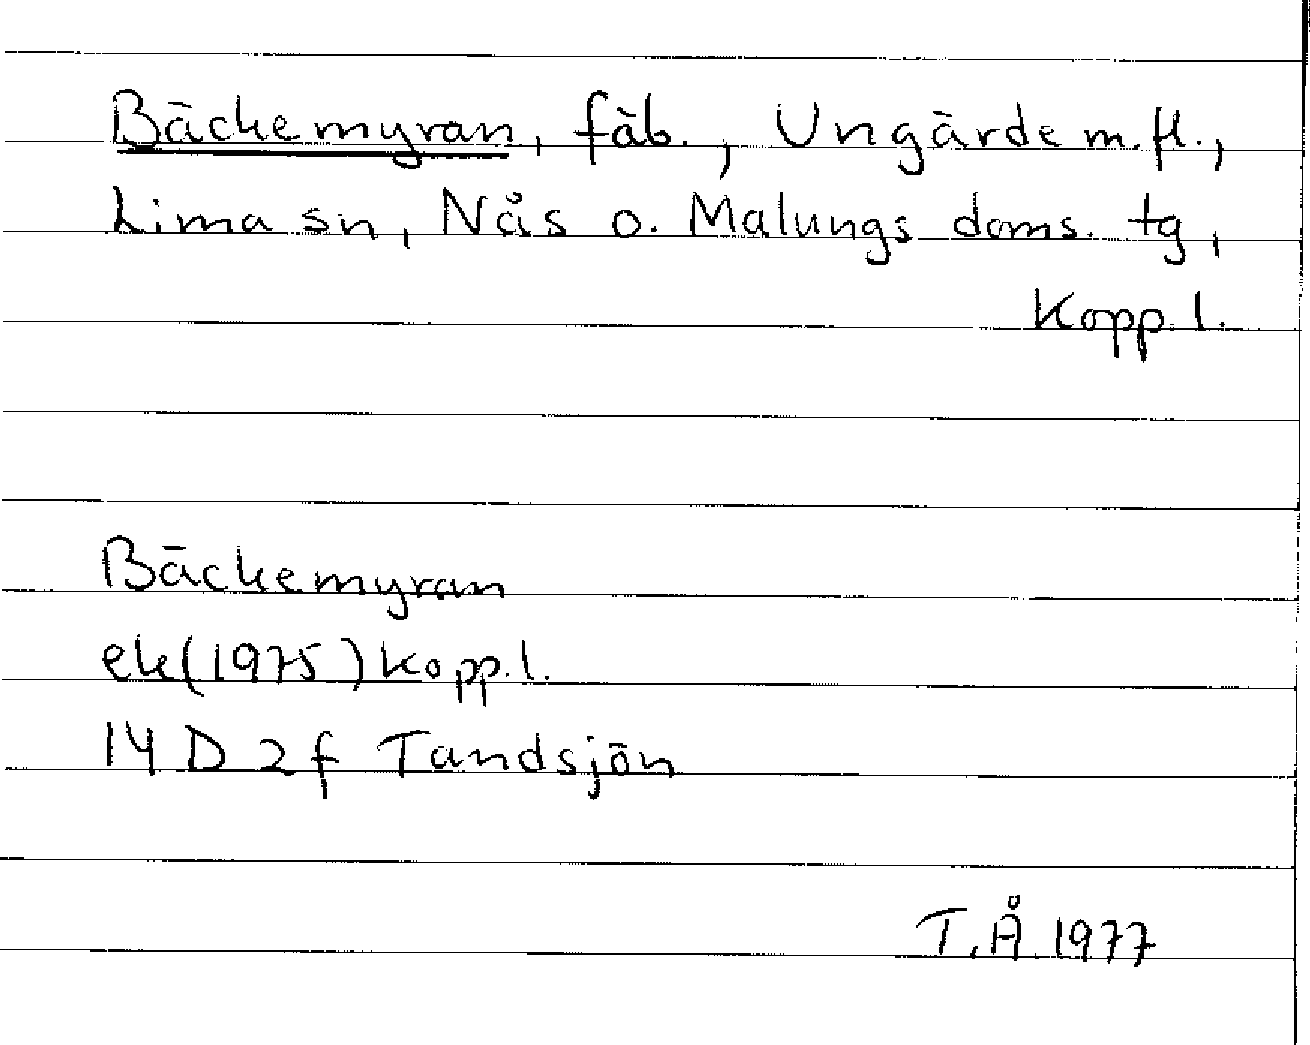 Bäckemyran, fäb., Ungärde m.fl.,
Lima sn, Nås o. Malungs doms. tg,
Kopp. l.
Bäckemyran
ek (1975) Kopp. l.
14 D 2f Tandsjön
T.Å 1977